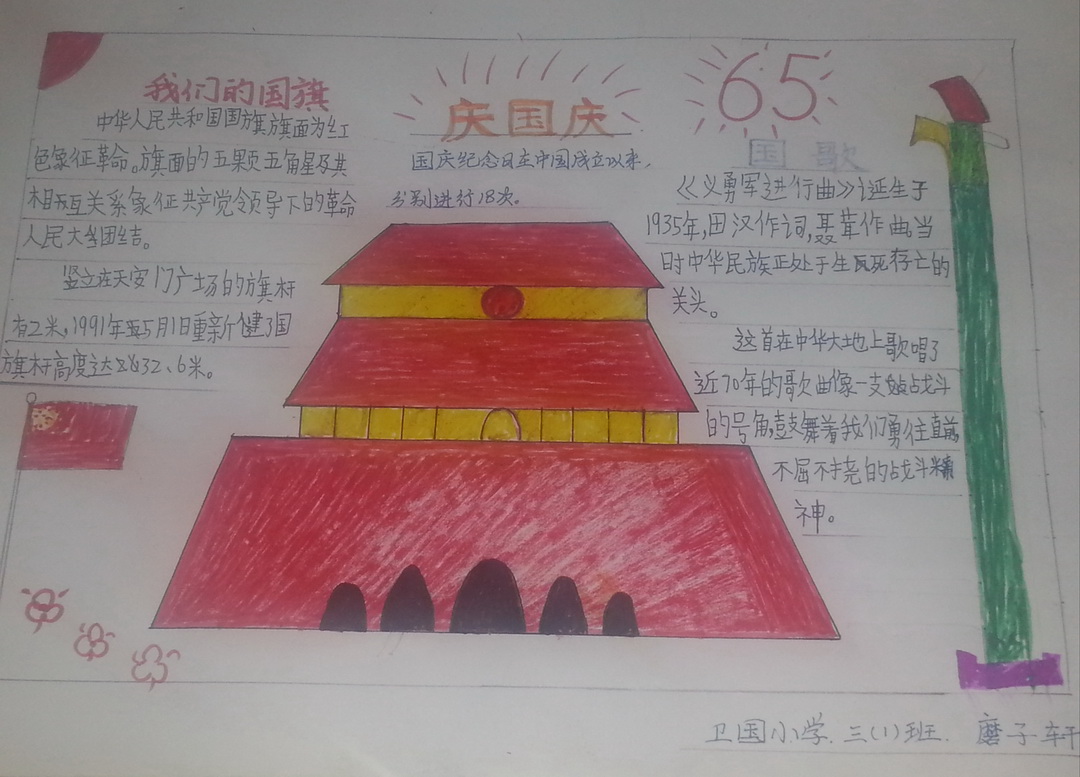 我们的国旗
中华人民共和国国旗旗面为红
色象征革命。旗面的五颗五角星及其
相互关系象征共产党领导下的革命
人民大团结。
竖立在天安门广场的旗杆
有22米,1991年5月1日重新健了国
旗杆高度达32、6米。
庆国庆
国庆纪念日在中国成立以来,
分别进行18次。
65
国歌
《义勇军进行曲》诞生于
1935年,田汉作词,聂耳作曲,当
时中华民族正处于生死存亡的
关头。
这首在中华大地上歌唱了
近70年的歌曲像一支战斗
的号角,鼓舞着我们勇往直前,
不屈不挠的战斗精
神。
卫国小学.三(1)班. 磨子轩